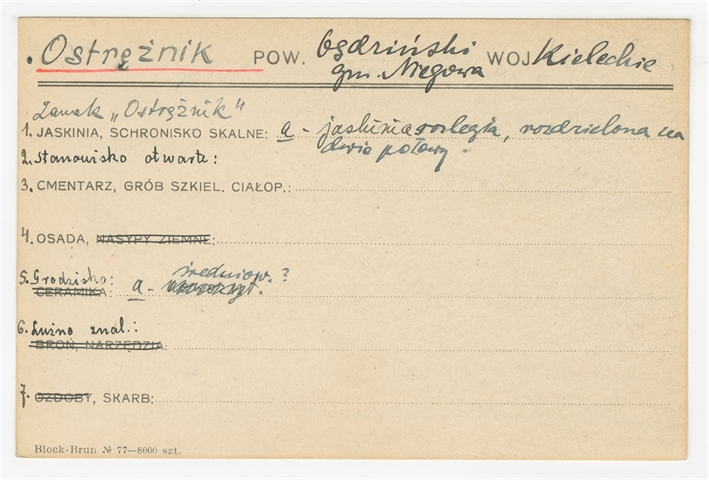 . Ostrężnik POW. będziński WOJ. Kieleckie
gm. Niegowa
Zamek „Ostrężnik"
1. JASKINIA, SCHRONISKO SKALNE: a - jaskinia rozległa, rozdzielona na
dwie połowy.
2. Stanowisko otwarte:
3. CMENTARZ, GRÓB SZKIEL. CIAŁOP.:
4. OSADA, NASYPY ZIEMNE:
5. Grodzisko: średniow. ?
CERAMIKA: a -
6. Luźno znal.:
BROŃ, NARZĘDZIA:
7. OZDOBY, SKARB:
Block-Brun № 77—8000 szt.